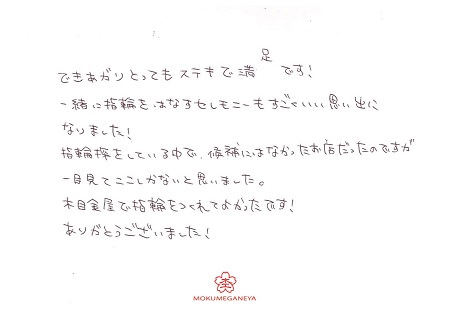 できあがりとってもステキで満足です!
一緒に指輪をはなすセレモニーもすごくいい思い出に
なりました!
指輪探をしている中で、候補にはなかったお店だったのですが
一目見てここしかないと思いました。
木目金屋で指輪をつくれてよかったです!
ありがとうございました!
MOKUMEGANEYA